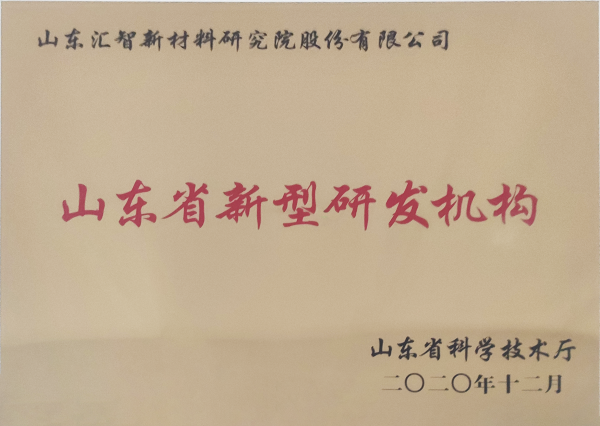 山东汇智新材料研究院股份有限公司
山东省新型研发机构
山东省科学技术厅
二〇二〇年十二月